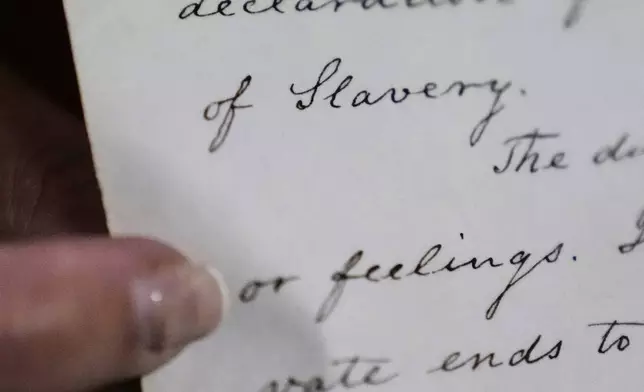 declaration
of Slavery.
The
or feelings.
vate ends to